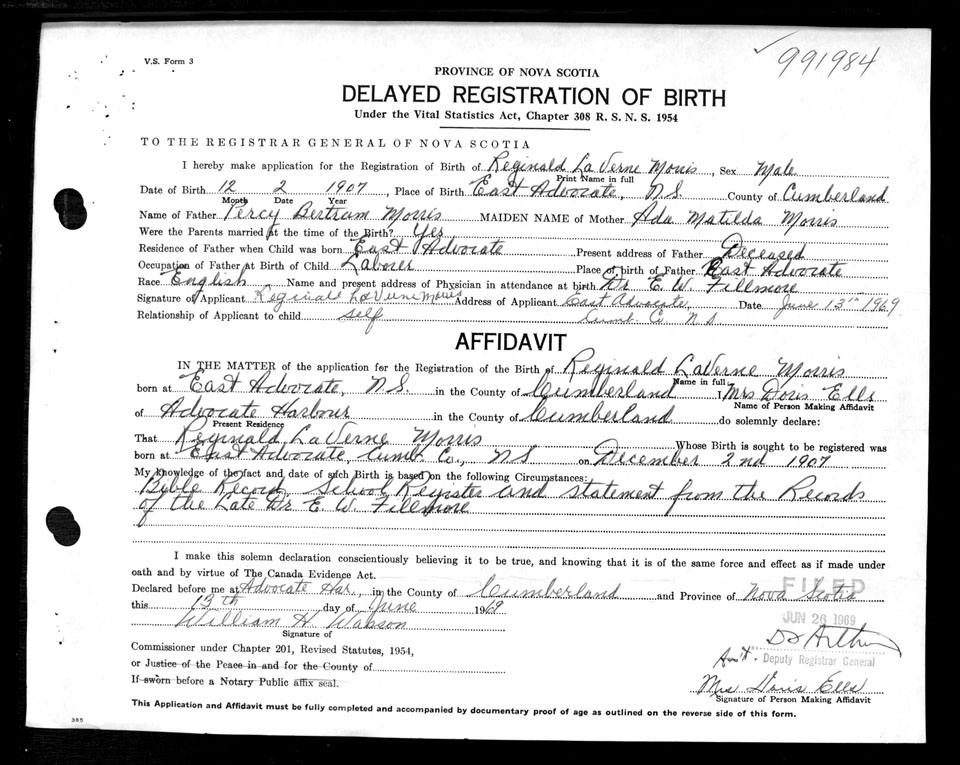 V.S. Form 3
✓991984
PROVINCE OF NOVA SCOTIA
DELAYED REGISTRATION OF BIRTH
Under the Vital Statistics Act, Chapter 308 R. S. N. S. 1954
TO THE REGISTRAR GENERAL OF NOVA SCOTIA
I hereby make application for the Registration of Birth of Reginald LaVerne Morris, Sex Male
Print Name in full
Date of Birth 12 2 1907, Place of Birth East Advocate, N.S. County of Cumberland
Month Date Year
Name of Father Percy Bertram Morris MAIDEN NAME of Mother Ada Matilda Morris
Were the Parents married at the time of the Birth? Yes
Residence of Father when Child was born East Advocate Present address of Father Deceased
Occupation of Father at Birth of Child Laborer Place of birth of Father East Advocate
Race English Name and present address of Physician in attendance at birth Dr E. W. Fillmore
Signature of Applicant Reginald LaVerne Morris Address of Applicant East Advocate, Date June 13th 1969
Relationship of Applicant to child self Cumb. Co N S
AFFIDAVIT
IN THE MATTER of the application for the Registration of the Birth of Reginald LaVerne Morris
Name in full
born at East Advocate, N.S. in the County of Cumberland I Mrs Doris Ells
Name of Person Making Affidavit
of Advocate Harbour in the County of Cumberland do solemnly declare:
Present Residence
That Reginald LaVerne Morris Whose Birth is sought to be registered was
born at East Advocate, Cumb. Co., N S on December 2nd 1907
My knowledge of the fact and date of such Birth is based on the following Circumstances:
Bible Record, School Register and statement from the Records
of the Late Dr E. W. Fillmore
I make this solemn declaration conscientiously believing it to be true, and knowing that it is of the same force and effect as if made under
oath and by virtue of The Canada Evidence Act.
Declared before me at Advocate Har., in the County of Cumberland and Province of Nova Scotia
this 13th day of June 1969
FILED
JUN 26 1969
William H. Watson
Signature of
Commissioner under Chapter 201, Revised Statutes, 1954,
Ass't. Deputy Registrar General
or Justice of the Peace in and for the County of
If sworn before a Notary Public affix seal.
Mrs Doris Ells
Signature of Person Making Affidavit
This Application and Affidavit must be fully completed and accompanied by documentary proof of age as outlined on the reverse side of this form.
385